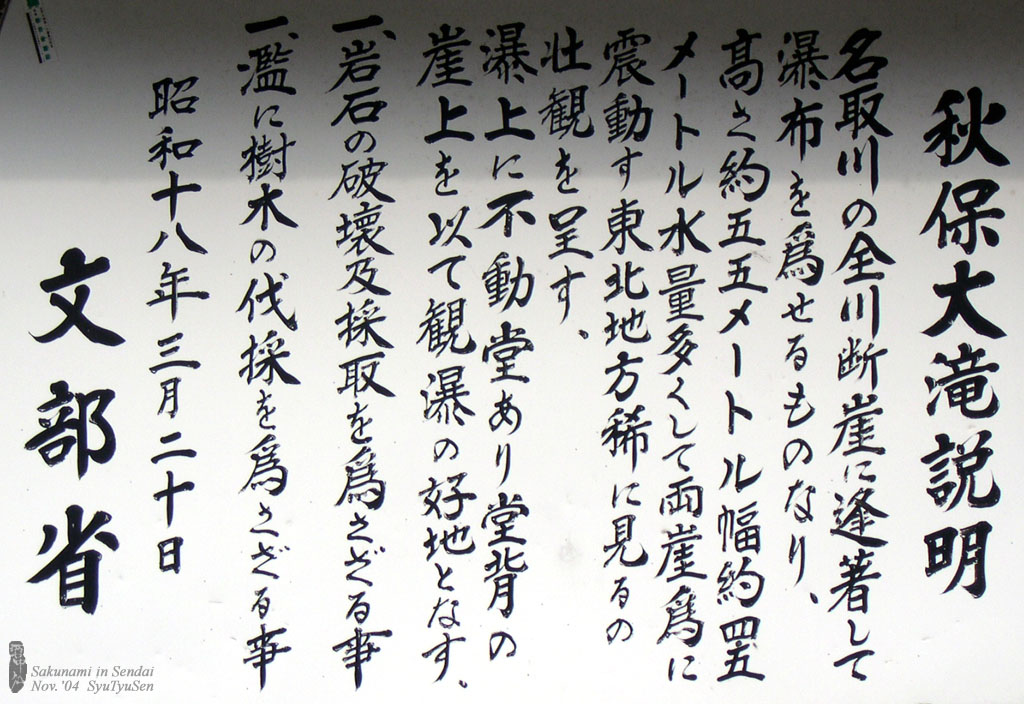 秋保大滝説明
名取川の全川断崖に逢著して
瀑布を爲せるものなり、
高さ約五五メートル幅約四五
メートル水量多くして両崖爲に
震動す東北地方稀に見るの
壮観を呈す、
瀑上に不動堂あり堂背の
崖上を以て観瀑の好地となす、
一、岩石の破壊及採取を爲さざる事
一、濫に樹木の伐採を爲さざる事
昭和十八年三月二十日
文部省
Sakunami in Sendai
Nov. '04 SyuTyuSen